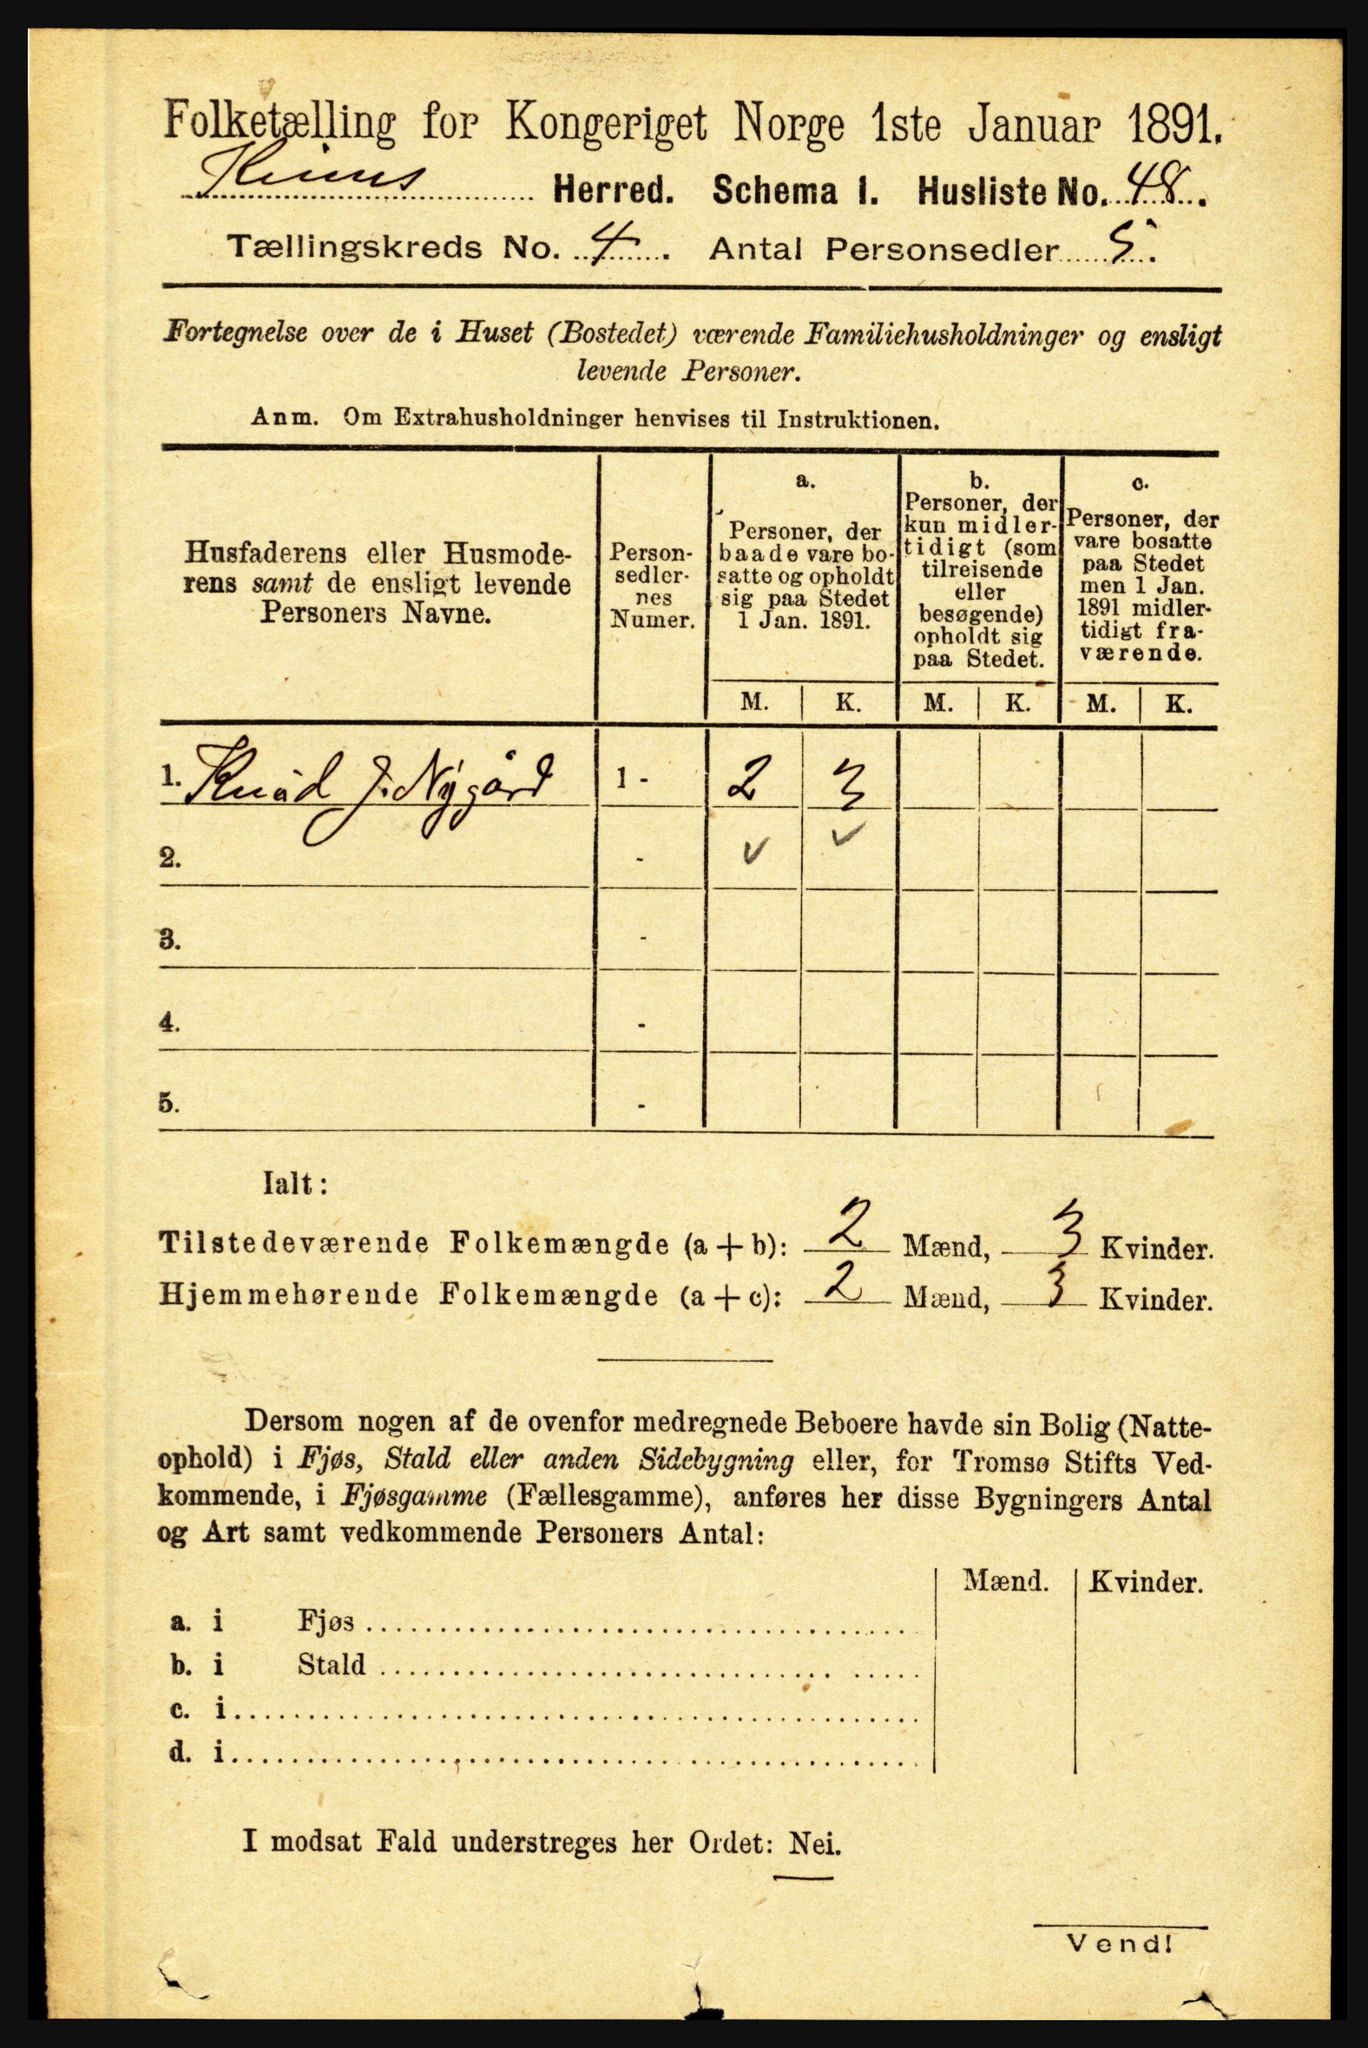 Folketælling for Kongeriget Norge 1ste Januar 1891.
Kinns Herred. Schema I. Husliste No. 48.
Tællingskreds No. 4. Antal Personsedler 5.
Fortegnelse over de i Huset (Bostedet) værende Familiehusholdninger og ensligt
levende Personer.
Anm. Om Extrahusholdninger henvises til Instruktionen.
Husfaderens eller Husmode-
rens samt de ensligt levende
Personers Navne.
Person-
sedler-
nes
Numer.
a.
Personer, der
baade vare bo-
satte og opholdt
sig paa Stedet
1 Jan. 1891.
b.
Personer, der
kun midler-
tidigt (som
tilreisende
eller
besøgende)
opholdt sig
paa Stedet.
c.
Personer, der
vare bosatte
paa Stedet
men 1 Jan.
1891 midler-
tidigt fra-
værende.
M. K. M. K. M. K.
1. Knud J. Nygård 1 - 2 3
2. - ✓ ✓
3. -
4. -
5. -
Ialt:
Tilstedeværende Folkemængde (a+b): 2 Mænd, 3 Kvinder.
Hjemmehørende Folkemængde (a+c): 2 Mænd, 3 Kvinder.
Dersom nogen af de ovenfor medregnede Beboere havde sin Bolig (Natte-
ophold) i Fjøs, Stald eller anden Sidebygning eller, for Tromsø Stifts Ved-
kommende, i Fjøsgamme (Fællesgamme), anføres her disse Bygningers Antal
og Art samt vedkommende Personers Antal:
Mænd. Kvinder.
a. i Fjøs
b. i Stald
c. i
d. i
I modsat Fald understreges her Ordet: Nei.
Vend!